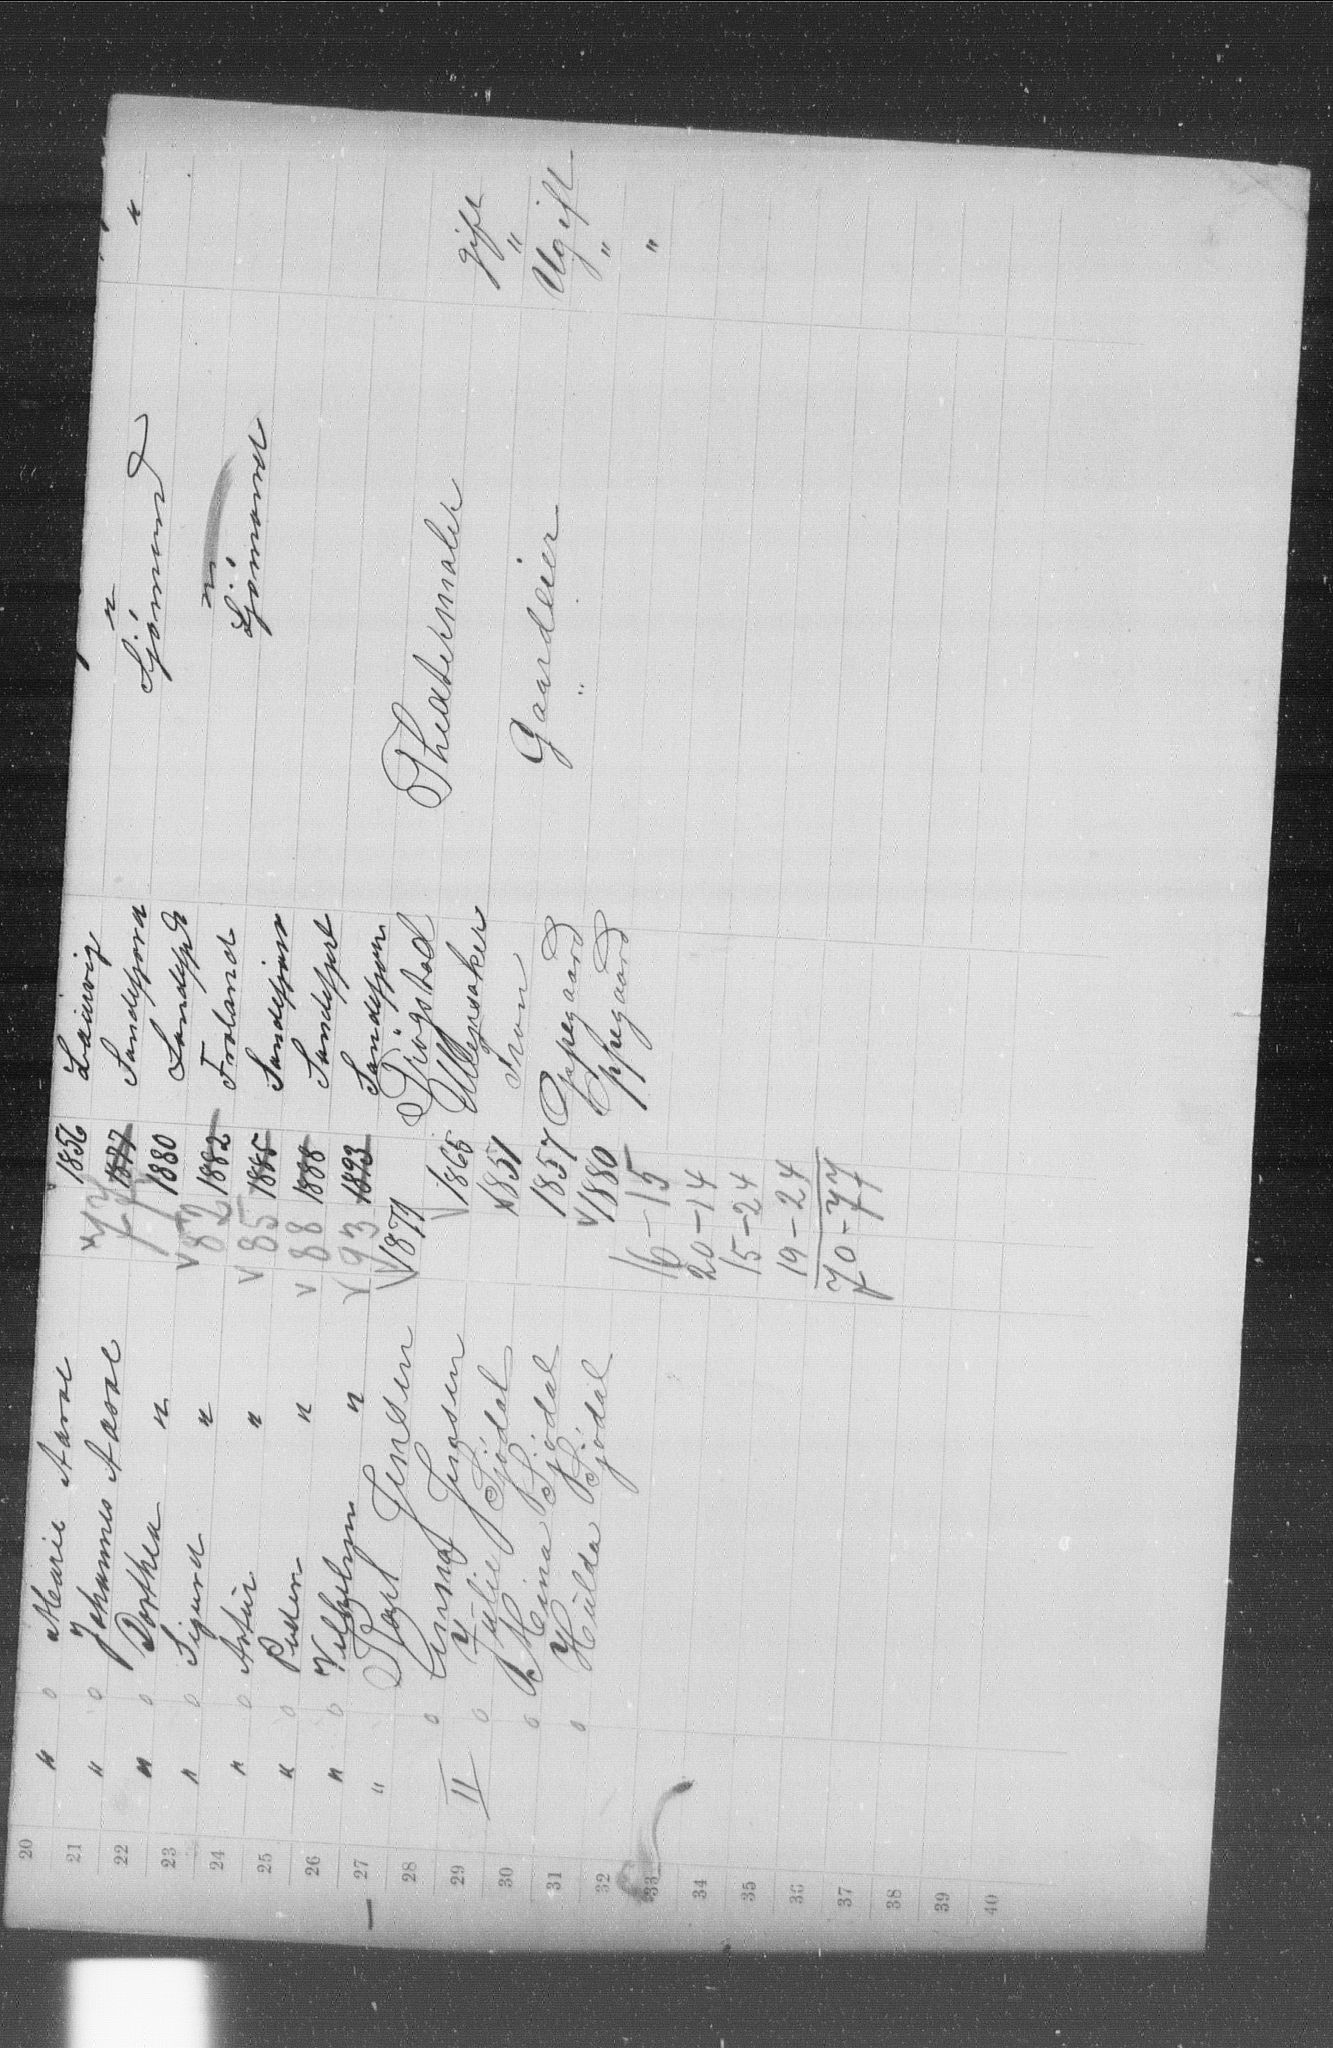 20 " o Marie Aarre 1856 Laurvig "
21 " o Johannes Aasve 77 1877 Sandefjord Sjömand "
22 " o Dorthea " 1880 Sandefjd
23 " o Sigurd " v 82 1882 Froland Sjömand
24 " o Artúr " v 85 1885 Sandefjord
25 " o Peder " v 88 1888 Sandefjord
26 " o Vilhelm " v 93 1893 Sandefjorn
27 " Karl Jensen v 1871 Trögstad Theatermaler gift
28 II o Anna Jensen v 1865 Ullensaker "
29 o Julie Sjödal 1851 Gaardeier Ugift
30 o Mina Sjödal 1857 Oppegaard " "
31 o Húlda Sjödal v 1880 Oppegaard "
32 16-15
33 20-14
34 15-24
35 19-24
36 70-77
37
38
39
40